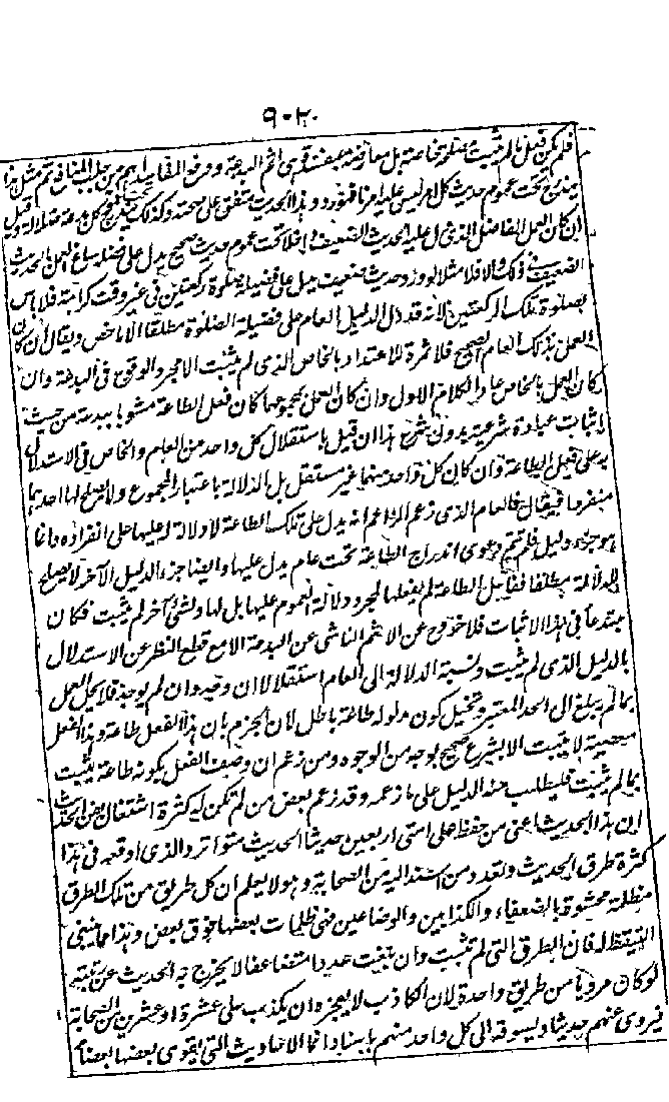 ٩٠٢
فلم يكن قبل بالم يثبت مصلحة خاصة بل معارضة بمفسدة وهى اثم البدعة ودفع المفاسد اهم من جلب المنافع ثم مثل هذا
يندرج تحت عموم حديث كل امر ليس عليه امرنا فهو رد وهذا الحديث متفق على صحته وكذلك كل بدعة ضلالة وقيل
ان كان العمل الفاضل الذى دل عليه الحديث الضعيف داخلا تحت عموم حديث صحيح يدل على فضله ساغ العمل بالحديث
الضعيف فى ذلك والا فلا مثلا لو ورد حديث ضعيف يدل على فضيلة صلوة ركعتين فى غير وقت كراهة فلا باس
بصلوة تلك الركعتين لانه قد دل الدليل العام على فضيلة الصلوة مطلقا الا ما خص ويقال ان كان
العمل بذلك العام الصحيح فلا ثمرة للاعتداد بالخاص الذى لم يثبت الا مجرد الوقوع فى البدعة وان
كان العمل بالخاص عاد الكلام الاول وان كان العمل بمجموعهما كان فعل الطاعة مشوبا ببدعة من حيث
اثبات عبادة شرعية بدون شرع هذا ان قيل باستقلال كل واحد من العام والخاص فى الاستدلال
به على فعل الطاعة وان كان كل واحد منهما غير مستقل بل الدلالة باعتبار المجموع ولا يصلح لها احدهما
منفردا فيقال فالعام الذى زعم الزاعم انه يدل على تلك الطاعة لا دلالة له عليها على انفراده وانما
هو جزء دليل فلم تتم دعوى اندراج الطاعة تحت عام يدل عليها وايضا جزء الدليل الآخر لا يصلح
للدلالة مطلقا ففاعل الطاعة لم يفعلها لمجرد دلالة العموم عليها بل لها ولشئ آخر لم يثبت فكان
مبتدعا فى هذا الاثبات فلا خروج عن الاثم الناشى عن البدعة الا مع قطع النظر عن الاستدلال
بالدليل الذى لم يثبت ونسبة الدلالة الى العام استقلالا ان وجد وان لم يوجد فلا يحل العمل
بما لم يبلغ الى الحد المعتبر وتخيل كون مدلوله طاعة باطل لان الجزم بان هذا الفعل طاعة وهذا الفعل
معصية لا يثبت الا بشرع صحيح بوجه من الوجوه ومن زعم ان وصف الفعل بكونه طاعة يثبت
بما لم يثبت فليطلب منه الدليل على ما زعمه وقد زعم بعض من لم تكن له كثرة اشتغال بفن الحديث
ان هذا الحديث اعنى من حفظ على امتى اربعين حديثا الحديث متواتر والذى اوقعه فى هذا
كثرة طرق الحديث وتعدد من اسند اليه من الصحابة وهو لا يعلم ان كل طريق من تلك الطرق
مظلمة محشوة بالضعفاء والكذابين والوضاعين فهى ظلمات بعضها فوق بعض وهذا مما ينبغى
التيقظ له فان الطرق التى لم تثبت وان بلغت عددا متضاعفا لا يخرج به الحديث عن رتبته
لو كان مرويا من طريق واحدة لان الكاذب لا يعجزه ان يكذب على عشرة او عشرين من الصحابة
فيروى عنهم حديثا ويسوقه الى كل واحد منهم باسناد انما الاحاديث التى يقوى بعضها بعضا